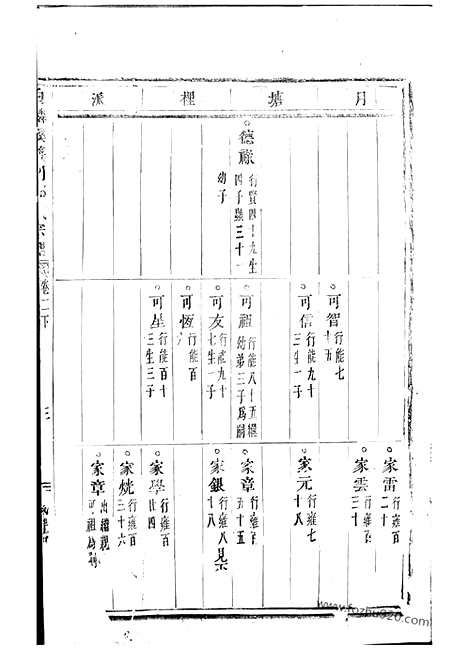 月塘裡派
德祿
行賢四十九生
四子繼三十一
幼子
可智
行能七
十五
可信
行能九十
三生一子
可祖
行能八十五繼
幼弟三子爲嗣
可友
行能九十
七生一子
可恆
行能百
可星
行能百十
三生三子
家雷
行雍百
二十
家雲
行雍百
三十
家元
行雍七
十八
家章
行雍百
五十五
家銀
行雍八
十八
家學
行雍百
廿四
家烷
行雍百
三十六
家章
出繼親
可祖爲嗣
卷二下
三
www.fozhu920.com